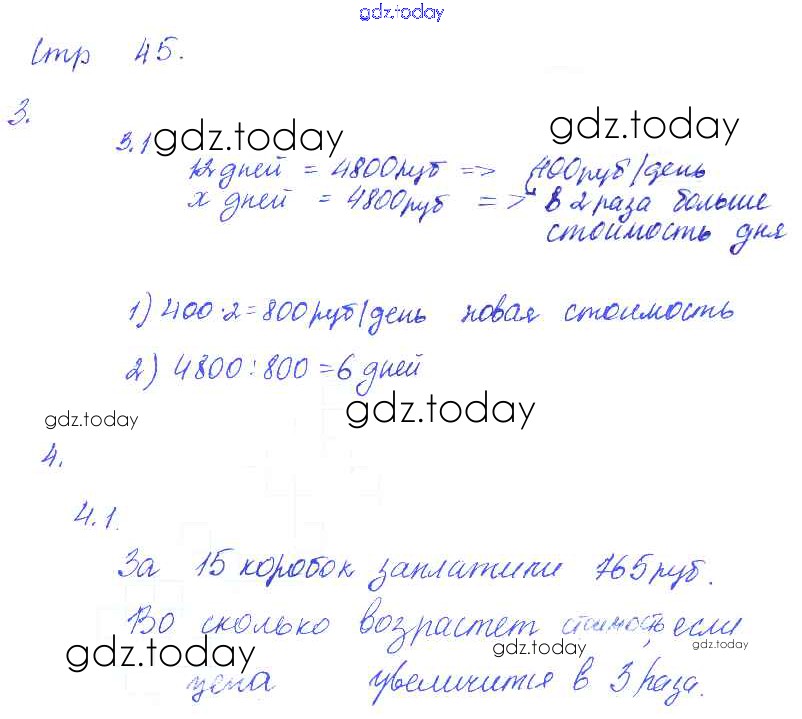 gdz.today
Стр 45.
3.
3.1 gdz.today gdz.today
12 дней = 4800 руб => 400 руб/день
х дней = 4800 руб => в 2 раза больше
стоимость дня
1) 400·2=800 руб/день новая стоимость
2) 4800:800=6 дней
gdz.today gdz.today
4.
4.1.
За 15 коробок заплатили 765 руб.
Во сколько возрастет стоимость, если
gdz.today gdz.today gdz.today
цена увеличится в 3 раза.